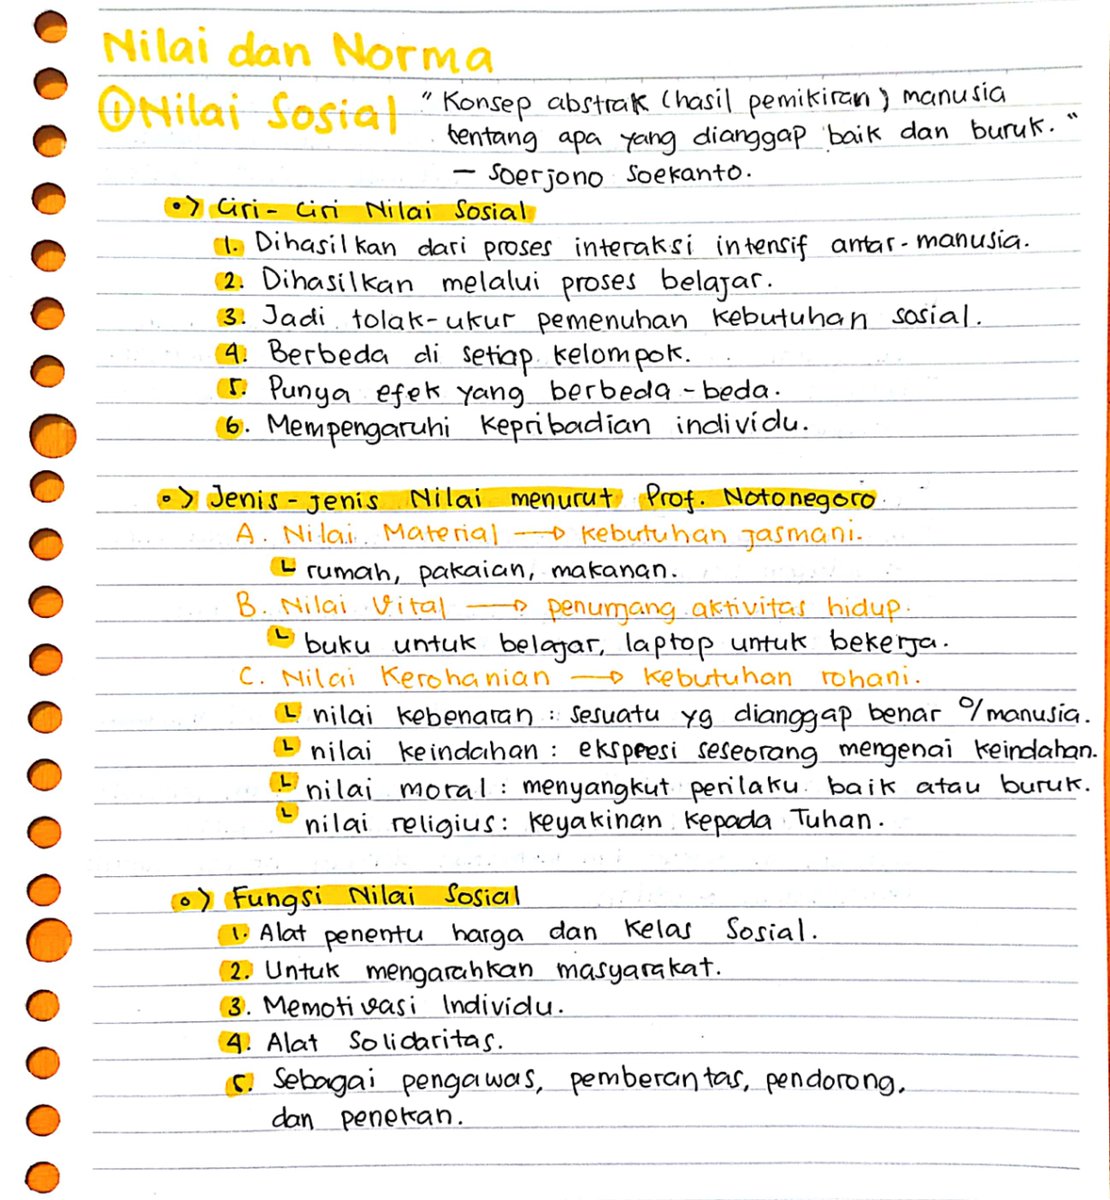 Nilai dan Norma
① Nilai Sosial
"Konsep abstrak (hasil pemikiran) manusia
tentang apa yang dianggap baik dan buruk."
— Soerjono Soekanto.
•> Ciri-Ciri Nilai Sosial
1. Dihasilkan dari proses interaksi intensif antar-manusia.
2. Dihasilkan melalui proses belajar.
3. Jadi tolak-ukur pemenuhan kebutuhan sosial.
4. Berbeda di setiap kelompok.
5. Punya efek yang berbeda-beda.
6. Mempengaruhi kepribadian individu.
•> Jenis-jenis Nilai menurut Prof. Notonegoro
A. Nilai Material → kebutuhan jasmani.
└ rumah, pakaian, makanan.
B. Nilai Vital → penunjang aktivitas hidup.
└ buku untuk belajar, laptop untuk bekerja.
C. Nilai Kerohanian → kebutuhan rohani.
└ nilai kebenaran : sesuatu yg dianggap benar o/manusia.
└ nilai keindahan : ekspresi seseorang mengenai keindahan.
└ nilai moral : menyangkut perilaku baik atau buruk.
└ nilai religius : keyakinan kepada Tuhan.
•> Fungsi Nilai Sosial
1. Alat penentu harga dan kelas Sosial.
2. Untuk mengarahkan masyarakat.
3. Memotivasi Individu.
4. Alat Solidaritas.
5. Sebagai pengawas, pemberantas, pendorong,
dan penekan.